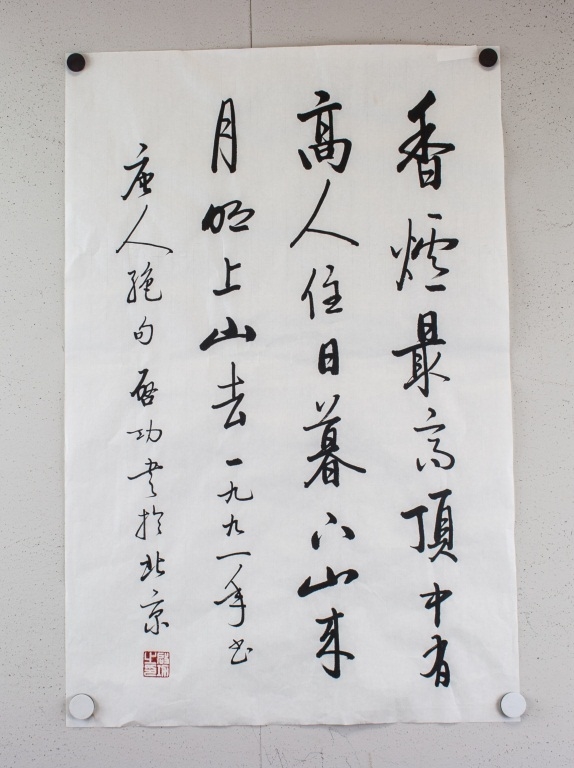 香爐最高頂中有
高人住日暮下山來
月明上山去一九九一年書
唐人絕句啟功書於北京